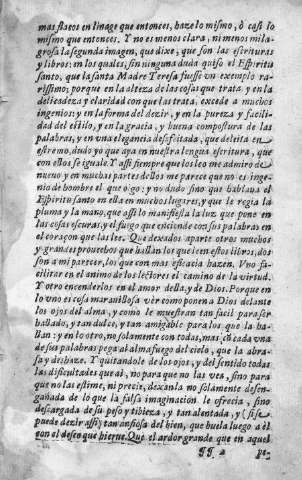 mas flacos en linage que entonces, haze lo mismo, ò casi lo
mismo que entonces. Y no es menos clara, ni menos mila-
grosa la segunda imagen, que dixe, que son las escrituras
y libros: en los quales, sin ninguna duda quiso el Espiritu
santo, que la santa Madre Teresa fuesse vn exemplo ra-
rissimo; porque en la alteza de las cosas que trata, y en la
delicadeza y claridad con que las trata, excede a muchos
ingenios: y en la forma del dezir, y en la pureza y facili-
dad del estilo, y en la gracia, y buena compostura de las
palabras, y en vna elegancia desafeitada, que deleita en
estremo, dudo yo que aya en nuestra lengua escritura, que
con ellos se iguale. Y assi siempre que los leo me admiro de
nueuo y en muchas partes dellos me parece que no es inge-
nio de hombre el que oigo: y no dudo sino que hablaua el
Espiritu santo en ella en muchos lugares, y que le regia la
pluma y la mano, que assi lo manifiesta la luz que pone en
las cosas escuras, y el fuego que enciende con sus palabras en
el coraçon que las lee. Que dexados aparte otros muchos
y grandes prouechos que hallan los que leen estos libros, dos
son a mi parecer, los que con mas eficacia hazen. Vno fa-
cilitar en el animo de los lectores el camino de la virtud.
Y otro encenderlos en el amor della, y de Dios. Porque en
lo vno es cosa marauillosa ver como ponen a Dios delante
los ojos del alma, y como le muestran tan facil para ser
hallado, y tan dulce, y tan amigable para los que la ha-
llan: y en lo otro, no solamente con todas, mas con cada vna
de sus palabras pega al alma fuego del cielo, que la abra-
sa y deshaze. Y quitandole de los ojos, y del sentido todas
las dificultades que ai, no para que no las vea, sino para
que no las estime, ni precie, dexanla no solamente desen-
gañada de lo que la falsa imaginacion le ofrecia, sino
descargada de su peso y tibieza, y tan alentada, y (si se
puede dezir assi) tan ansiosa del bien, que buela luego a èl
con el deseo que hierue. Que el ardor grande que en aquel